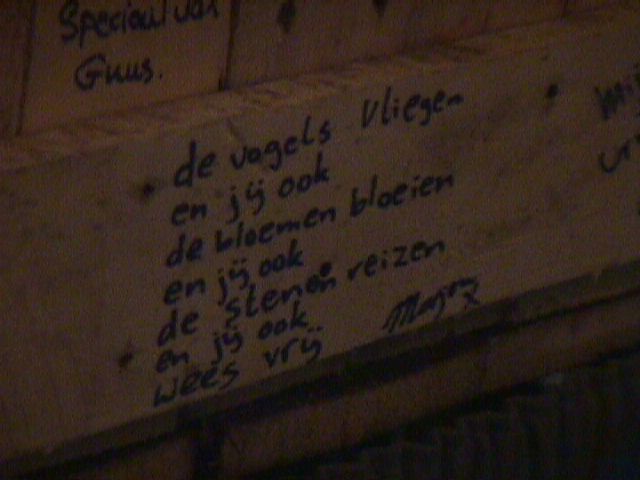 Speciaal van
Guus.
de vogels vliegen
en jij ook
de bloemen bloeien
en jij ook
de sterren reizen
en jij ook
wees vrij